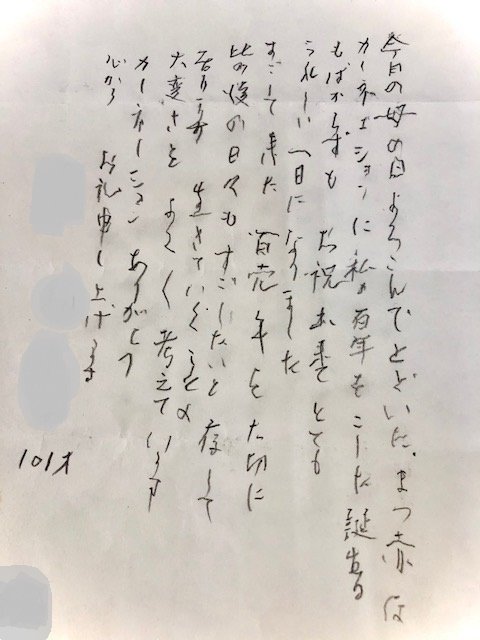 今日の母の日よろこんでとどいた、まつ赤な
カーネェションに私の百年をこした誕生日
もばからずも お祝出来てとても
うれしい一日になりました
すごして来た 百壱年を大切に
此の後の日々もすごしたいと存して
居ります 生きていくことの
大変さを よくよく考えています
カーネーション ありがとう
心から
お礼申し上げます
101才